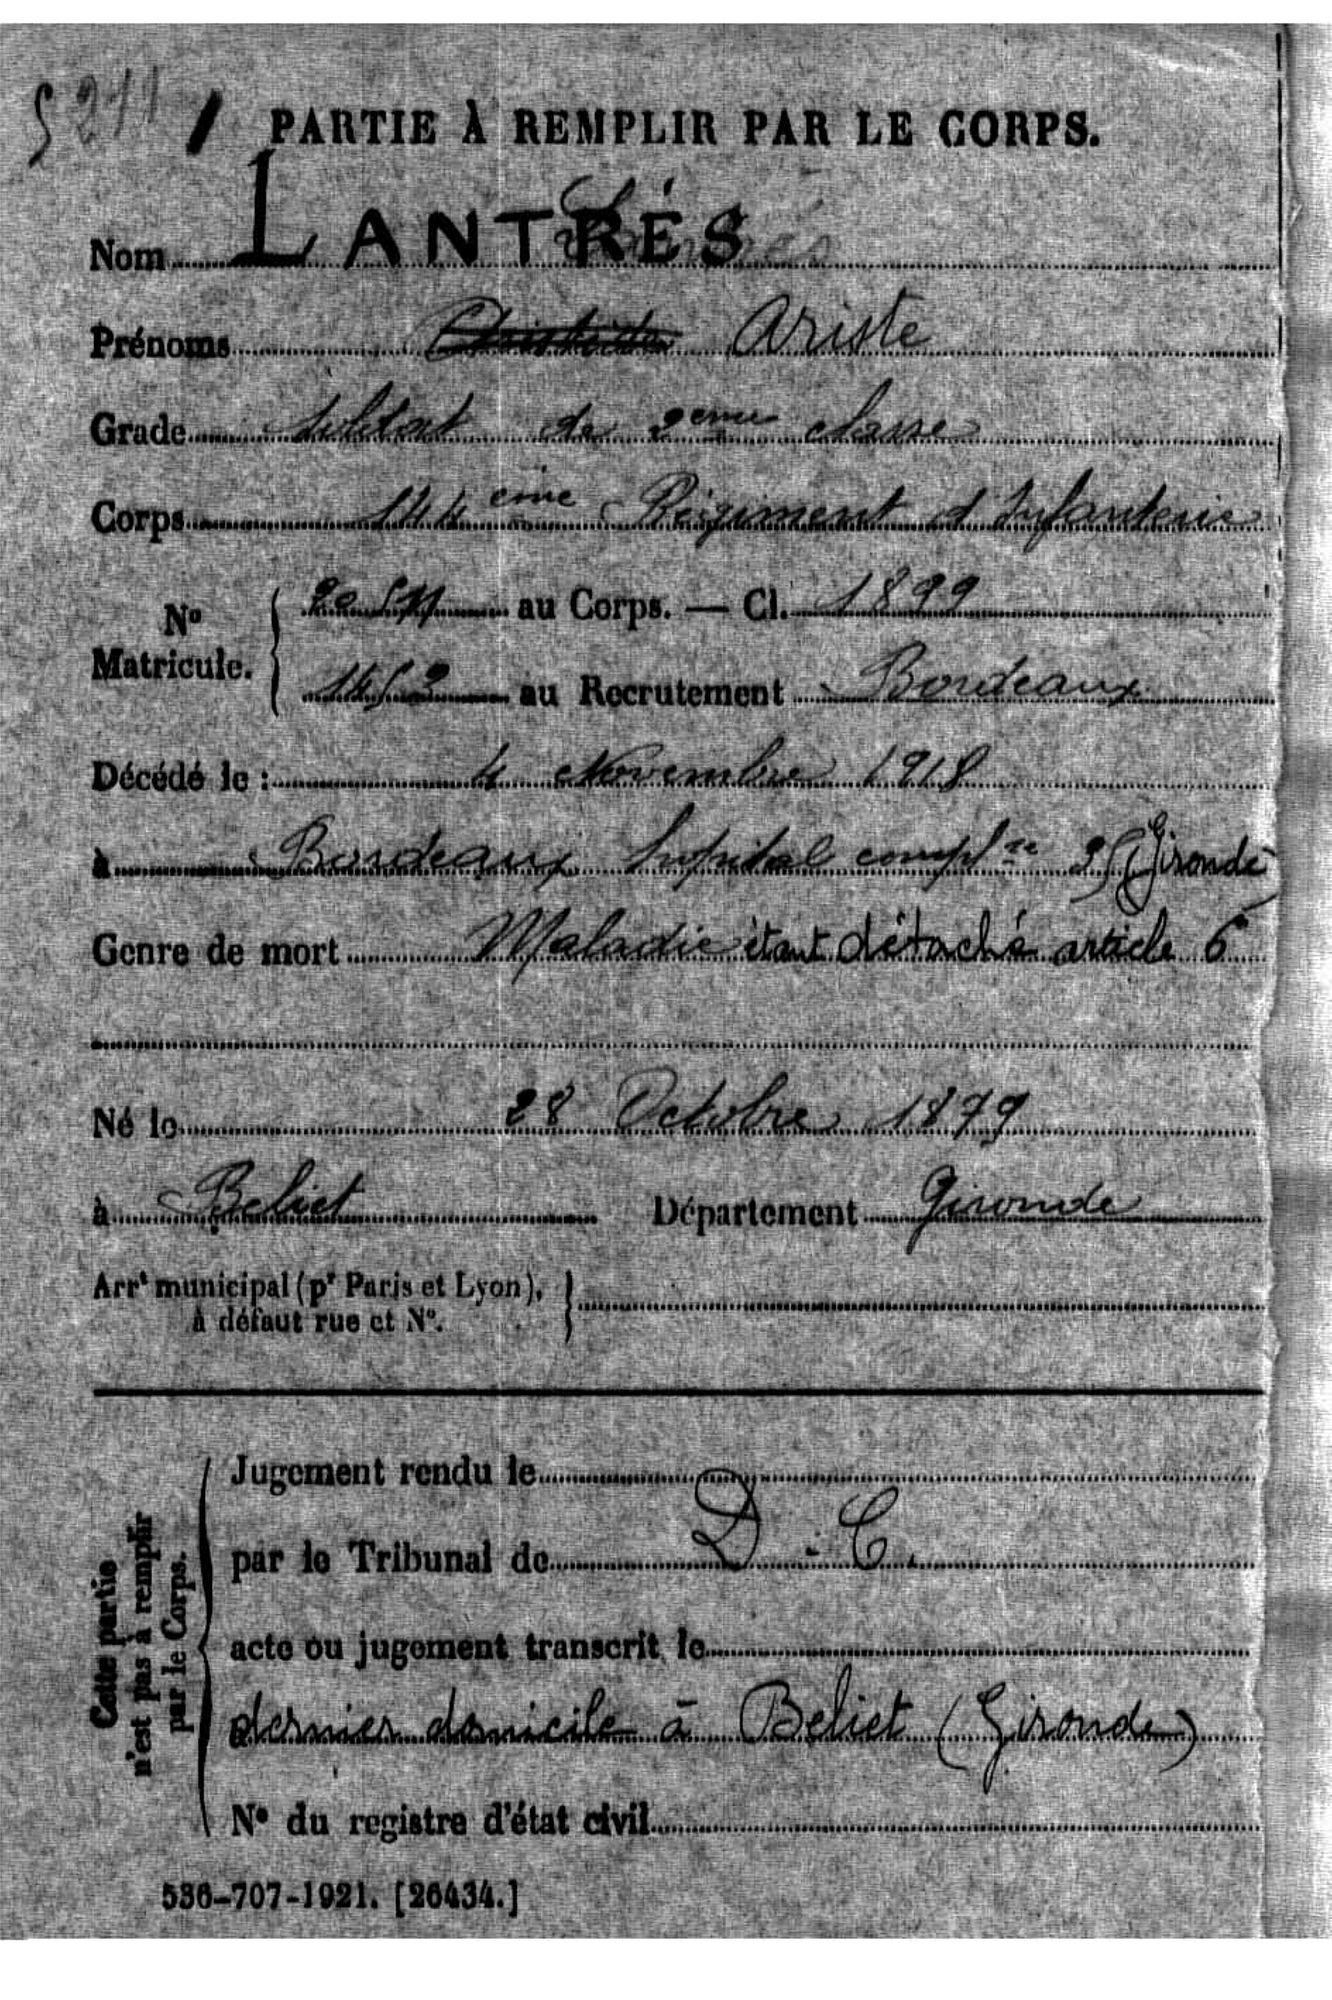 PARTIE À REMPLIR PAR LE CORPS.
Nom LANTRÉS
Prénoms Ariste
Grade soldat de 2eme classe
Corps 144eme Régiment d'Infanterie
No Matricule. au Corps. — Cl. 1899
1452 au Recrutement Bordeaux
Décédé le : 4 Novembre 1918
à Bordeaux hopital complre (Gironde)
Genre de mort Maladie étant détaché article 6
Né le 28 Octobre 1879
à Beliet Département Gironde
Arrt municipal (pr Paris et Lyon),
à défaut rue et No.
Cette partie
n'est pas à remplir
par le Corps.
Jugement rendu le
par le Tribunal de D. C.
acte ou jugement transcrit le
dernier domicile à Beliet (Gironde)
No du registre d'état civil
536-707-1921. [26434.]